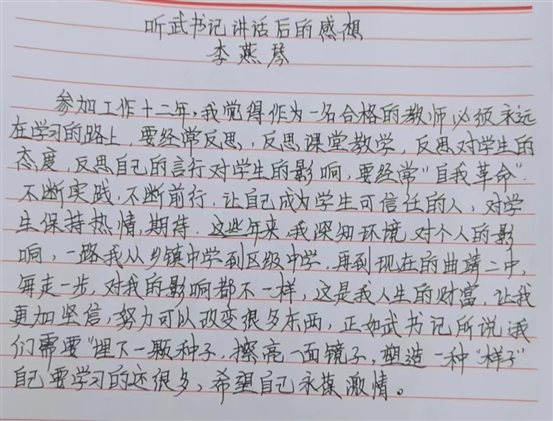 听武书记讲话后的感想
李燕琴
参加工作十二年,我觉得作为一名合格的教师必须永远
在学习的路上,要经常反思,反思课堂教学,反思对学生的
态度,反思自己的言行对学生的影响,要经常“自我革命”.
不断实践,不断前行,让自己成为学生可信任的人,对学
生保持热情,期待,这些年来,我深知环境对个人的影
响,一路我从乡镇中学到区级中学,再到现在的曲靖二中,
每走一步,对我的影响都不一样,这是我人生的财富,让我
更加坚信,努力可以改变很多东西,正如武书记所说:我
们需要“埋下一颗种子,擦亮一面镜子,塑造一种“样子”
自己要学习的还很多,希望自己永葆激情。